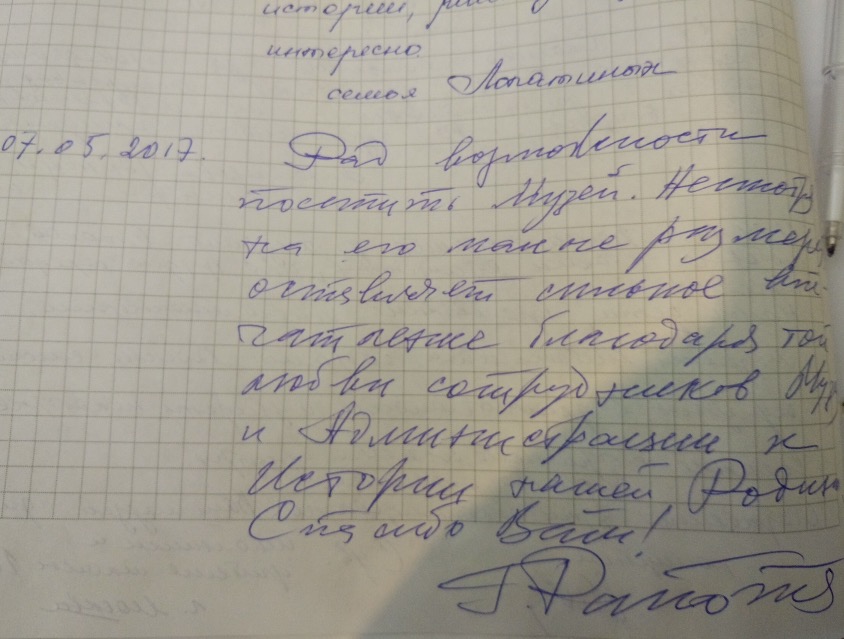 истории,
интересно.
семья Лопатиных
07.05.2017. Рад возможности
посетить Музей. Несмотря
на его малые размеры,
оставляет сильное впе-
чатление благодаря той
любви сотрудников Муз
и Администрации к
Истории нашей Родины
Спасибо Вам!